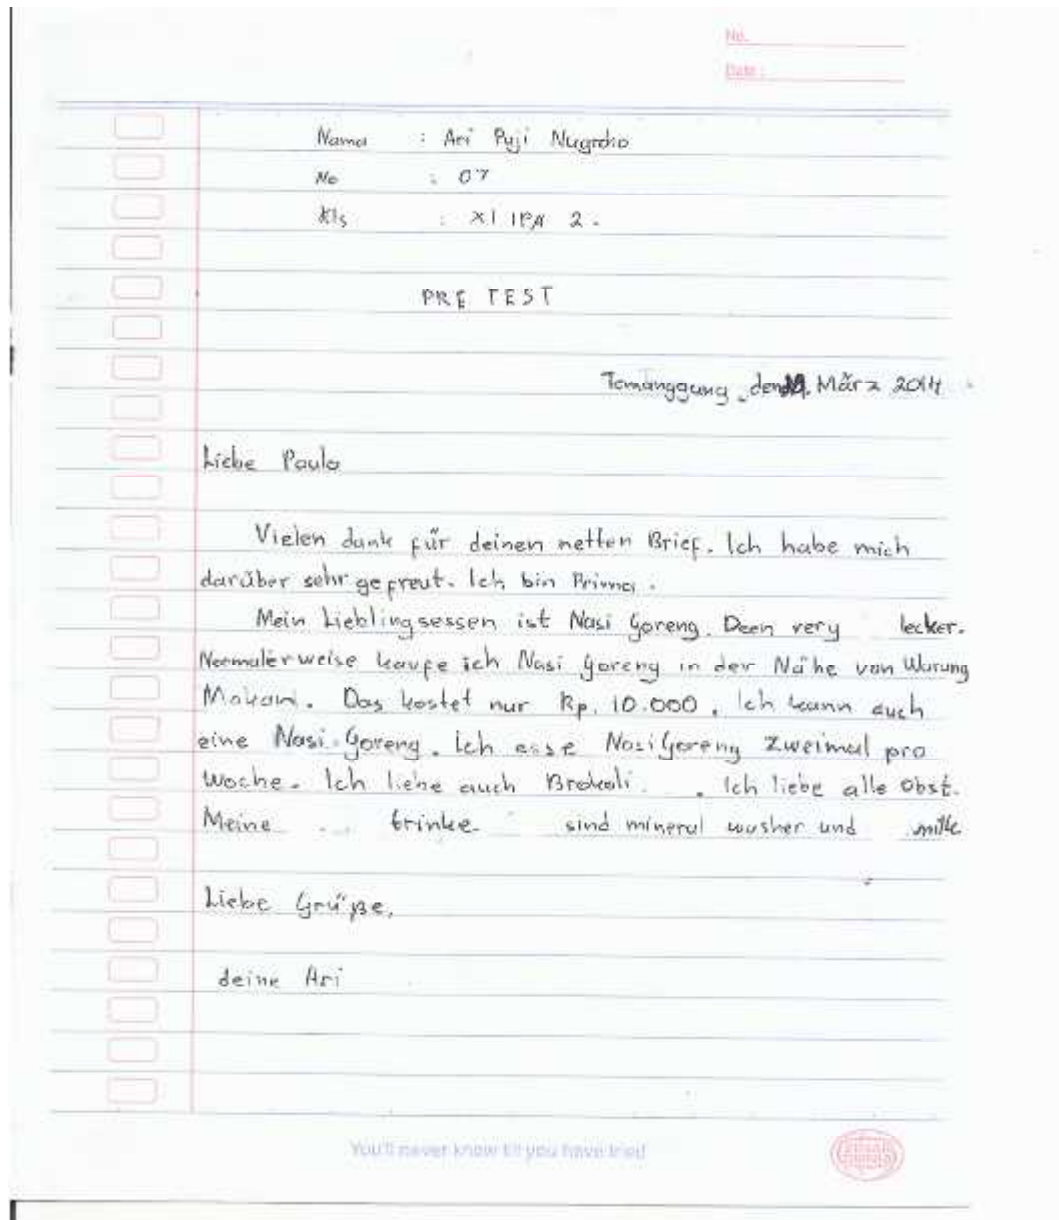 No.
Date :
Nama : Ari Puji Nugroho
No : 07
Kls : XI IPA 2.
PRE TEST
Temanggung, den . März 2014
Liebe Paula
Vielen dank für deinen netten Brief. Ich habe mich
darüber sehr gefreut. Ich bin Prima.
Mein Lieblingsessen ist Nasi Goreng. Deen very lecker.
Normalerweise kaufe ich Nasi Goreng in der Nähe von Warung
Makan. Das kostet nur Rp. 10.000, Ich kann auch
eine Nasi Goreng. Ich esse Nasi Goreng Zweimal pro
Woche. Ich liebe auch Brokoli. . Ich liebe alle Obst.
Meine trinke sind mineral washer und milk
Liebe Grüße,
deine Ari
You'll never know till you have tried